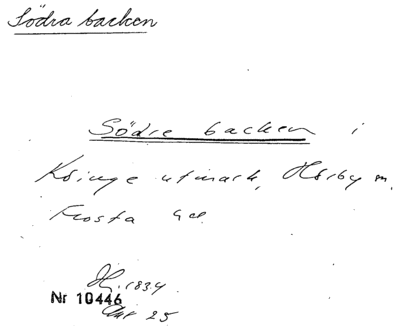 Södra backen
Södre backen i
Köinge utmark, Hörby m.
Frosta hd.
1834
Nr 10446
Akt 25